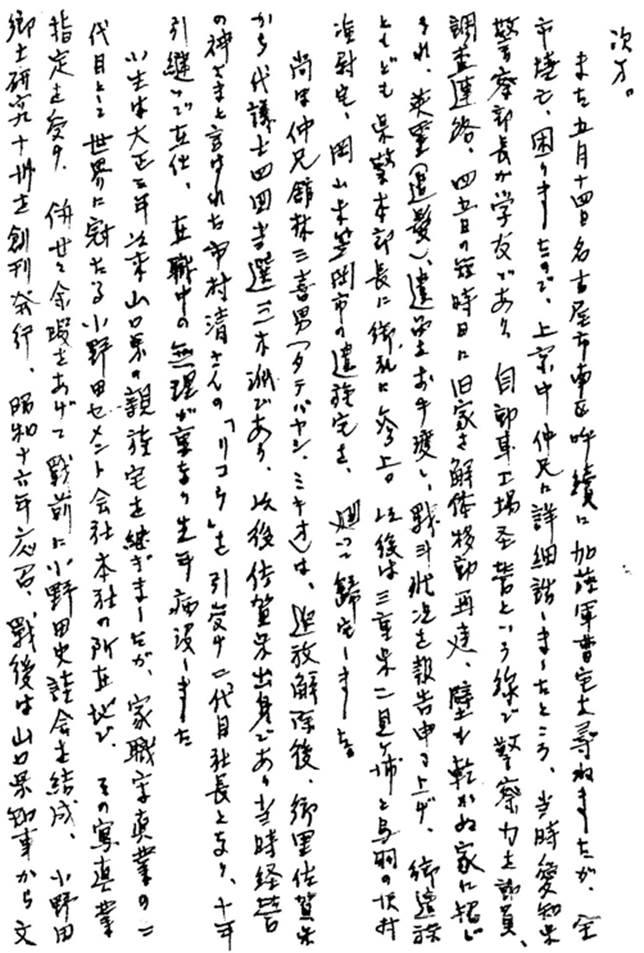 次才。
また五月十四日名古屋市南区呼続に加藤軍曹宅を尋ねましたが、全
市焼セ、困りましたので、上京中仲兄に詳細話しましたところ、当時愛知県
警察部長が学友であり、自動車工場経営という線で警察力を動員、
調査連絡、四五日の短時日に旧家を解体移動再建、壁も乾かぬ家に招じ
られ、英霊(遺髪)、遺骨をお手渡し、戦斗状況を報告申し上げ、御遺族
ともども県警本部長に御礼に参上。以後は三重県二見ヶ浦と鳥羽の沢村
准尉宅、岡山県笠岡市の遺族宅を、廻って帰宅しました。
尚ほ仲兄舘林三喜男(タテバヤシ、ミキオ)は、追放解除後、郷里佐賀県
から代議士四回当選三木派であり、以後佐賀県出身であり当時経営
の神さまと言はれた市村清さんの「リコウ」を引受け二代目社長となり、十年
引継いで在仕、在職中の無理が重なり先年病没しました
小生は大正三年以来山口県の親族宅を継ぎましたが、家職写真業の二
代目として世界に冠たる小野田セメント会社本社の所在地で、その写真業
指定を受け、併せて余暇をあげて戦前に小野田史談会を結成、小野田
郷土研究十冊を創刊発行、昭和十六年応召、戦後は山口県知事から文